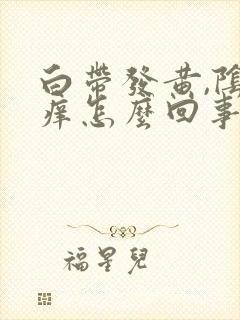 白帶發黃,陰
癢怎麼回事
福星兒